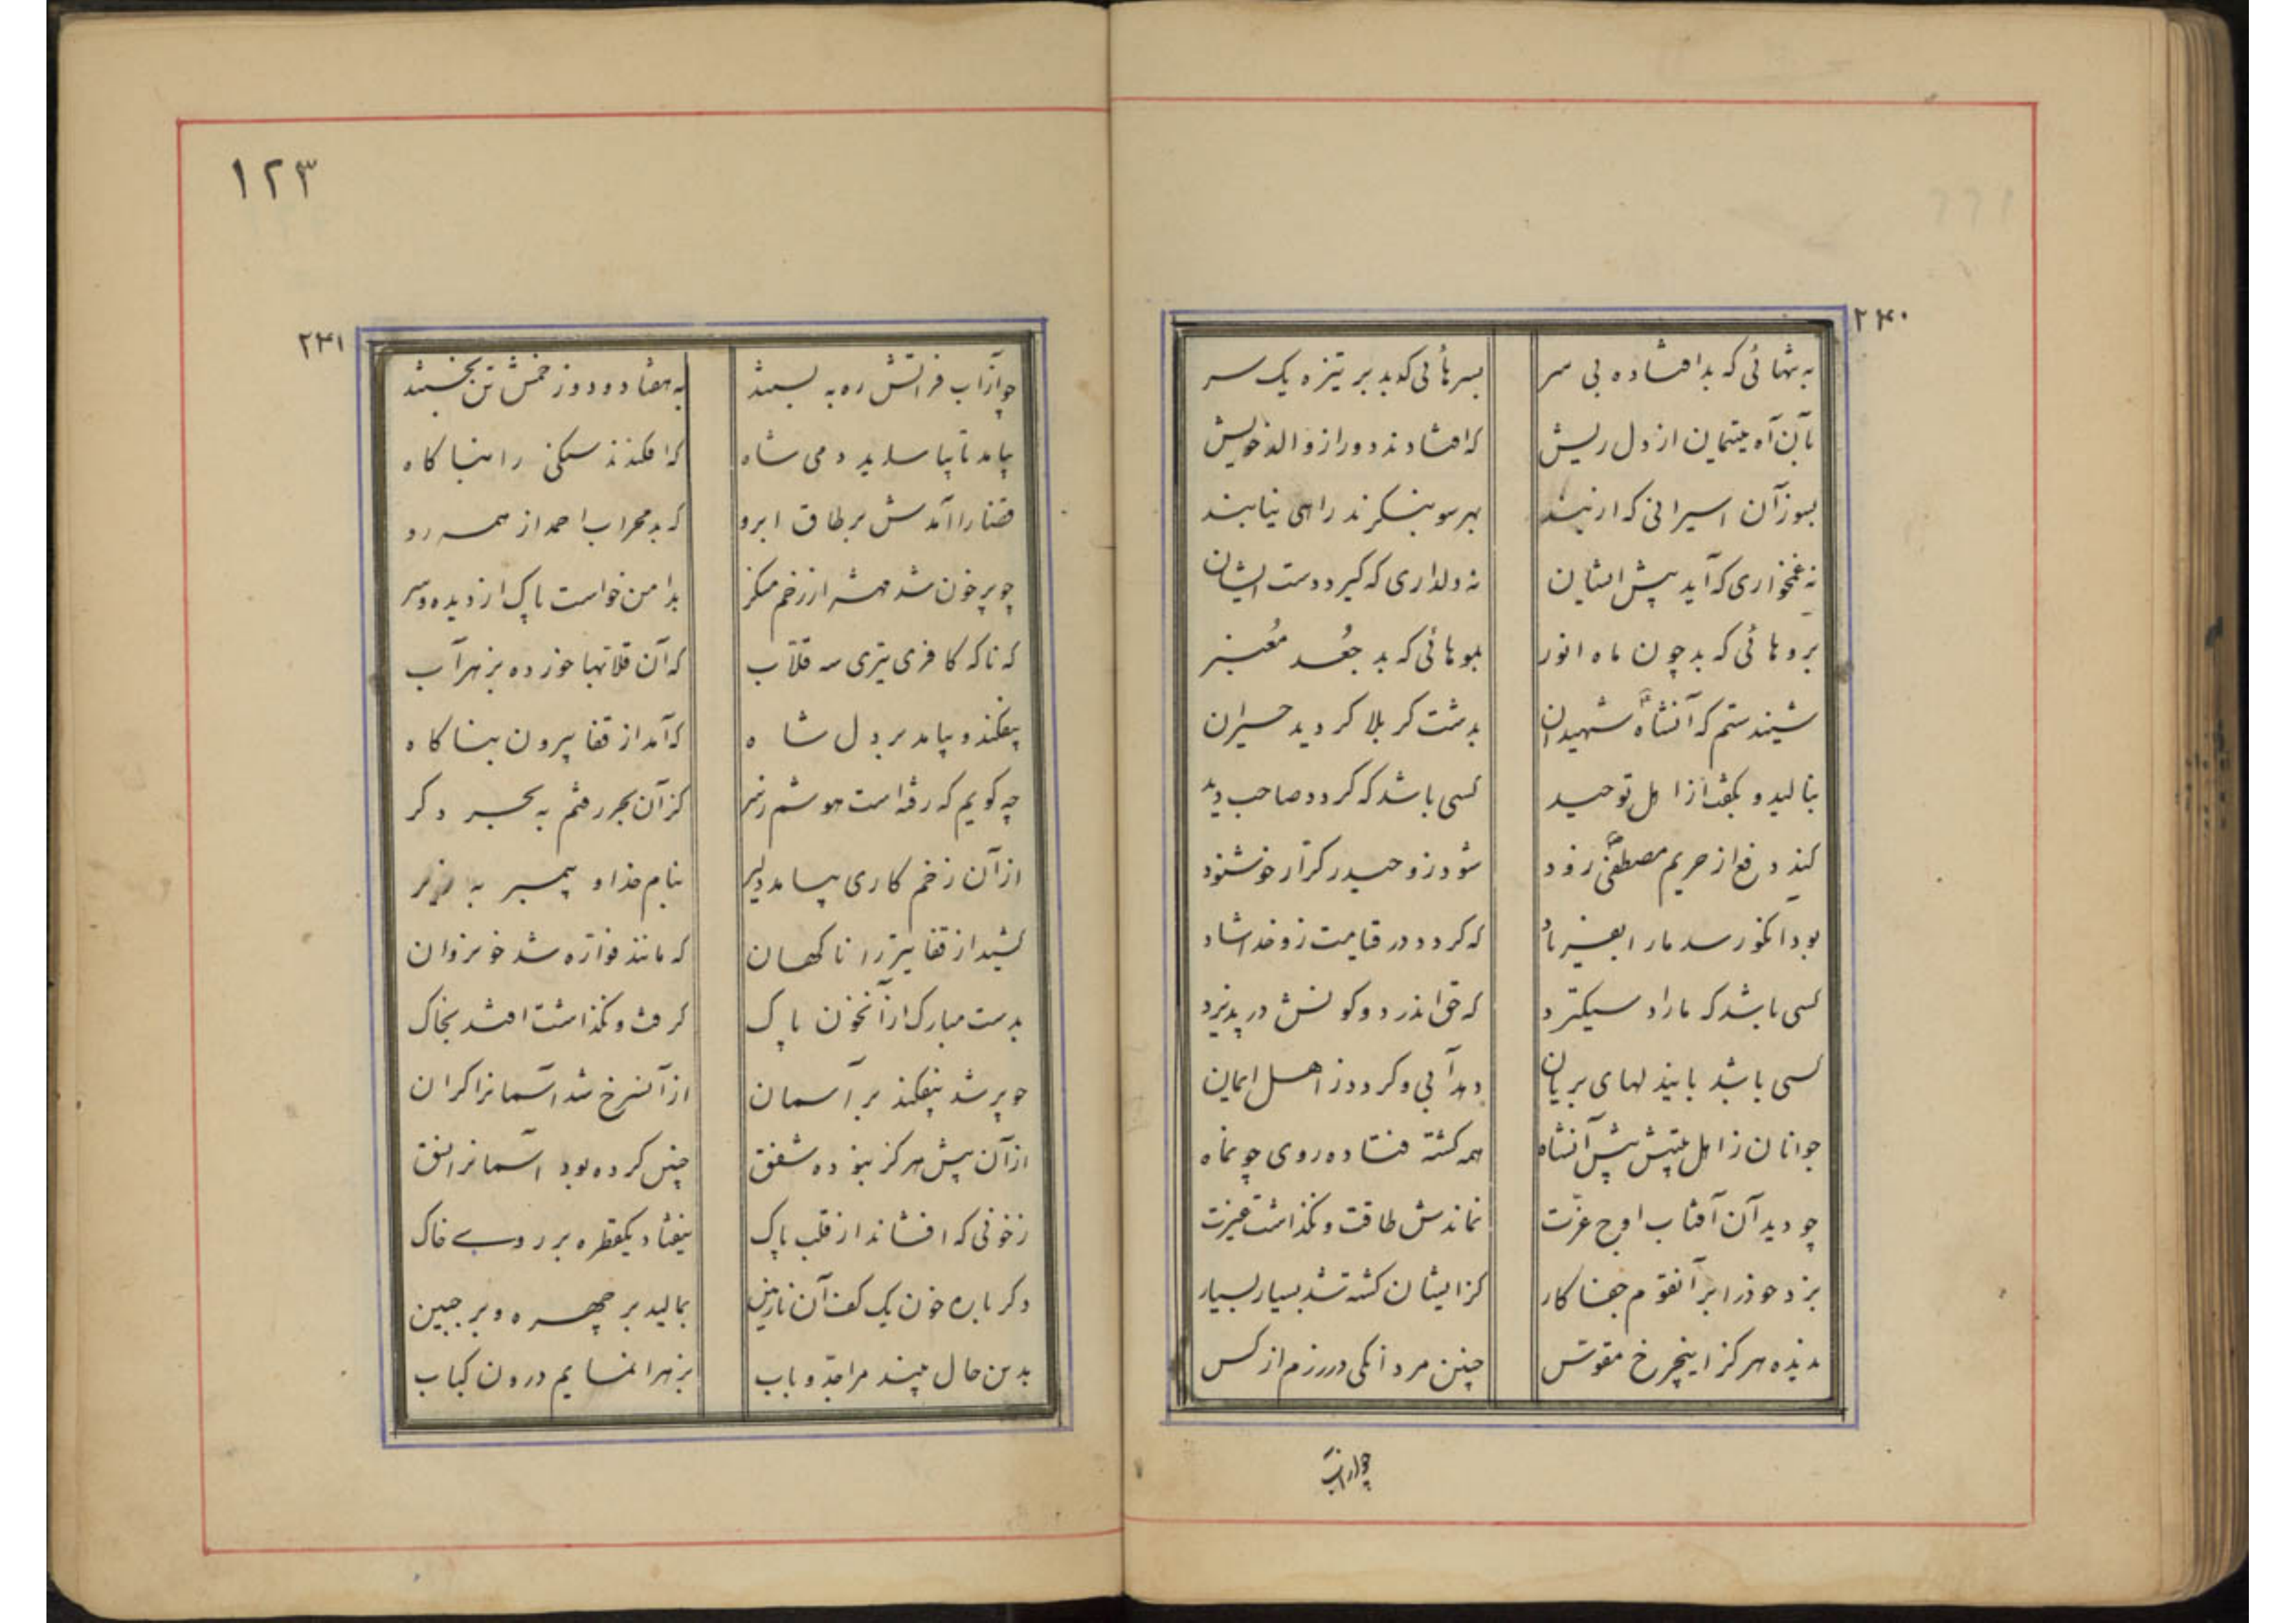 ۲۴۰
به تنهائی که بد افتاده بی سر بسرهائی که بد بر نیزه یک سر
بآن آه یتیمان از دل ریش که افتادند دور از والد خویش
بسوز آن اسیرانی که اربند بهر سو بنگرند راهی نیابند
نه غمخواری که آید پیش ایشان نه دلداری که گیرد دست ایشان
بروهائی که بد چون ماه انور بموهائی که بد جعد معنبر
شنیدستم که آنشاه شهیدان بدشت کربلا گردید حیران
بنالید و بگفت از اهل توحید کسی باشد که گردد صاحب دید
کند دفع از حریم مصطفی زود شود زو حیدر کرار خوشنود
بود آنکو رسد ما را بفریاد که گردد در قیامت زو خدا شاد
کسی باشد که ما را دستگیرد که حق اندر دو کونش در پذیرد
کسی باشد باین لبهای بریان دهد آبی و گردد ز اهل ایمان
جوانان ز اهل بیتش پیش آنشاه همه کشته فتاده روی چو نماه
چو دید آن آفتاب اوج عزت نماندش طاقت و نگذاشت غیرت
بزد خود را بر آنقوم جفا کار کز ایشان کشته شد بسیار بسیار
ندیده هرگز اینچرخ مقوس چنین مردانگی در رزم از کس
چو از آب
۱۲۳
۲۴۱
چو از آب فراتش ره به بستند به هفتاد و دو زخمش تن بخستند
بیامد تا بیاساید دمی شاه که افکندند سنگی را بناگاه
قضا را آمدش بر طاق ابرو که بد محراب احمد از همه رو
چو پر خون شد مهش از زخم منکر بدامن خواست پاک از دیده و سر
که ناگه کافری تیری سه قلاب که آن قلابها خورده بزهرآب
بیفکند و بیامد بر دل شاه که آمد از قفا بیرون بناگاه
چه گویم که رفته است هوشم ز سر کز آن بحر رفتم به بحر دگر
از آن زخم کاری بیامد دلیر بنام خدا و پیمبر به زیر
کشید از قفا تیر را ناگهان که مانند فواره شد خون روان
بدست مبارک از آنخون پاک گرفت و نگذاشت افتد بخاک
چو پر شد بیفکند بر آسمان از آن سرخ شد آسمانرا کران
از آن پیش هرگز نبوده شفق چنین کرده بود آسمانرا افق
ز خونی که افشاند از قلب پاک نیفتاد یکقطره بر روی خاک
دگر باره خون یک کف آن نازنین بمالید بر چهره و بر جبین
بدین حال بیند مرا جد و باب بزهرا نمایم درون کباب